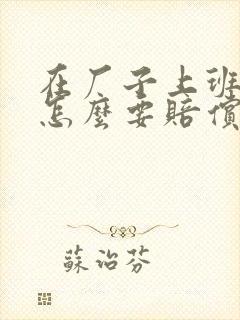 在厂子上班
怎麼要賠償
蘇治芬